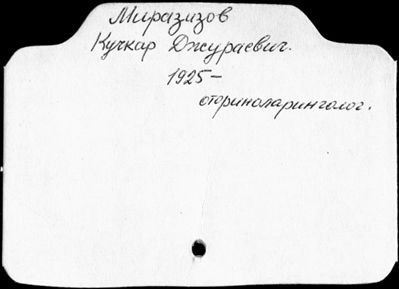 Миразизов
Кучкар Джураевич.
1925-
оториноларинголог.